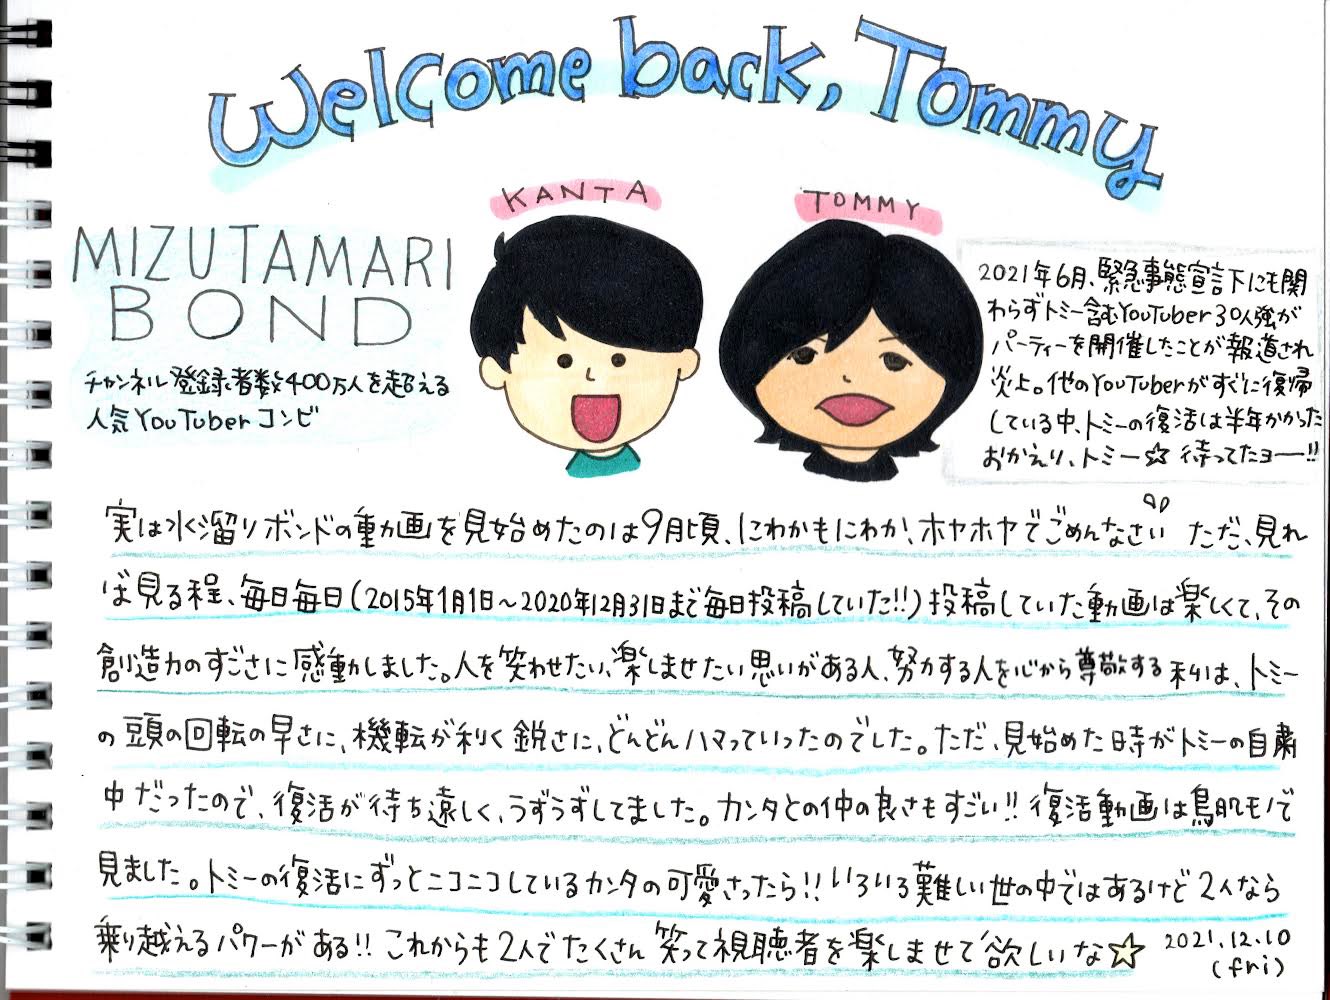 Welcome back, Tommy
KANTA
TOMMY
MIZUTAMARI
BOND
チャンネル登録者数400万人を超える
人気YouTuberコンビ
2021年6月、緊急事態宣言下にも関
わらずトミー含むYouTuber30人強が
パーティーを開催したことが報道され
炎上。他のYouTuberがすぐに復帰
している中、トミーの復活は半年かかった
おかえり、トミー☆ 待ってたヨー!!
実は水溜りボンドの動画を見始めたのは9月頃、にわかもにわか、ホヤホヤでごめんなさい ただ、見れ
ば見る程、毎日毎日(2015年1月1日〜2020年12月31日まで毎日投稿していた!!)投稿していた動画は楽しくて、その
創造力のすごさに感動しました。人を笑わせたい、楽しませたい思いがある人、努力する人を心から尊敬する私は、トミー
の頭の回転の早さに、機転が利く鋭さに、どんどんハマっていったのでした。ただ、見始めた時がトミーの自粛
中だったので、復活が待ち遠しく、うずうずしてました。カンタとの仲の良さもすごい!! 復活動画は鳥肌モノで
見ました。トミーの復活にずっとニコニコしているカンタの可愛さったら!! いろいろ難しい世の中ではあるけど2人なら
乗り越えるパワーがある!! これからも2人でたくさん笑って視聴者を楽しませて欲しいな☆
2021.12.10
(fri)